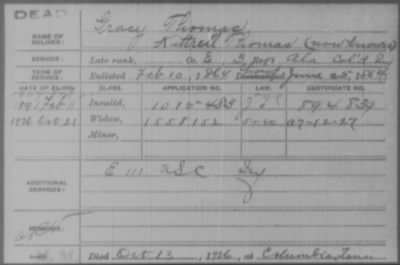 DEAD
Grasy Thomas
NAME OF SOLDIER: Kittrell Thomas (now Amours)
SERVICE: Late rank, Co. E, 3 Reg't Ala Col'd Inf
TERM OF SERVICE: Enlisted Feb 10, 1864 June 25, 186
DATE OF FILING. CLASS. APPLICATION NO. LAW. CERTIFICATE NO.
1891 Feb Invalid, 1010-483 894839
1926 Oct 21 Widow, 1558152 A7-12-27
Minor,
ADDITIONAL SERVICES: E 111 USC Inf
REMARKS:
Died Oct 13, 1926, at Columbia, Tenn